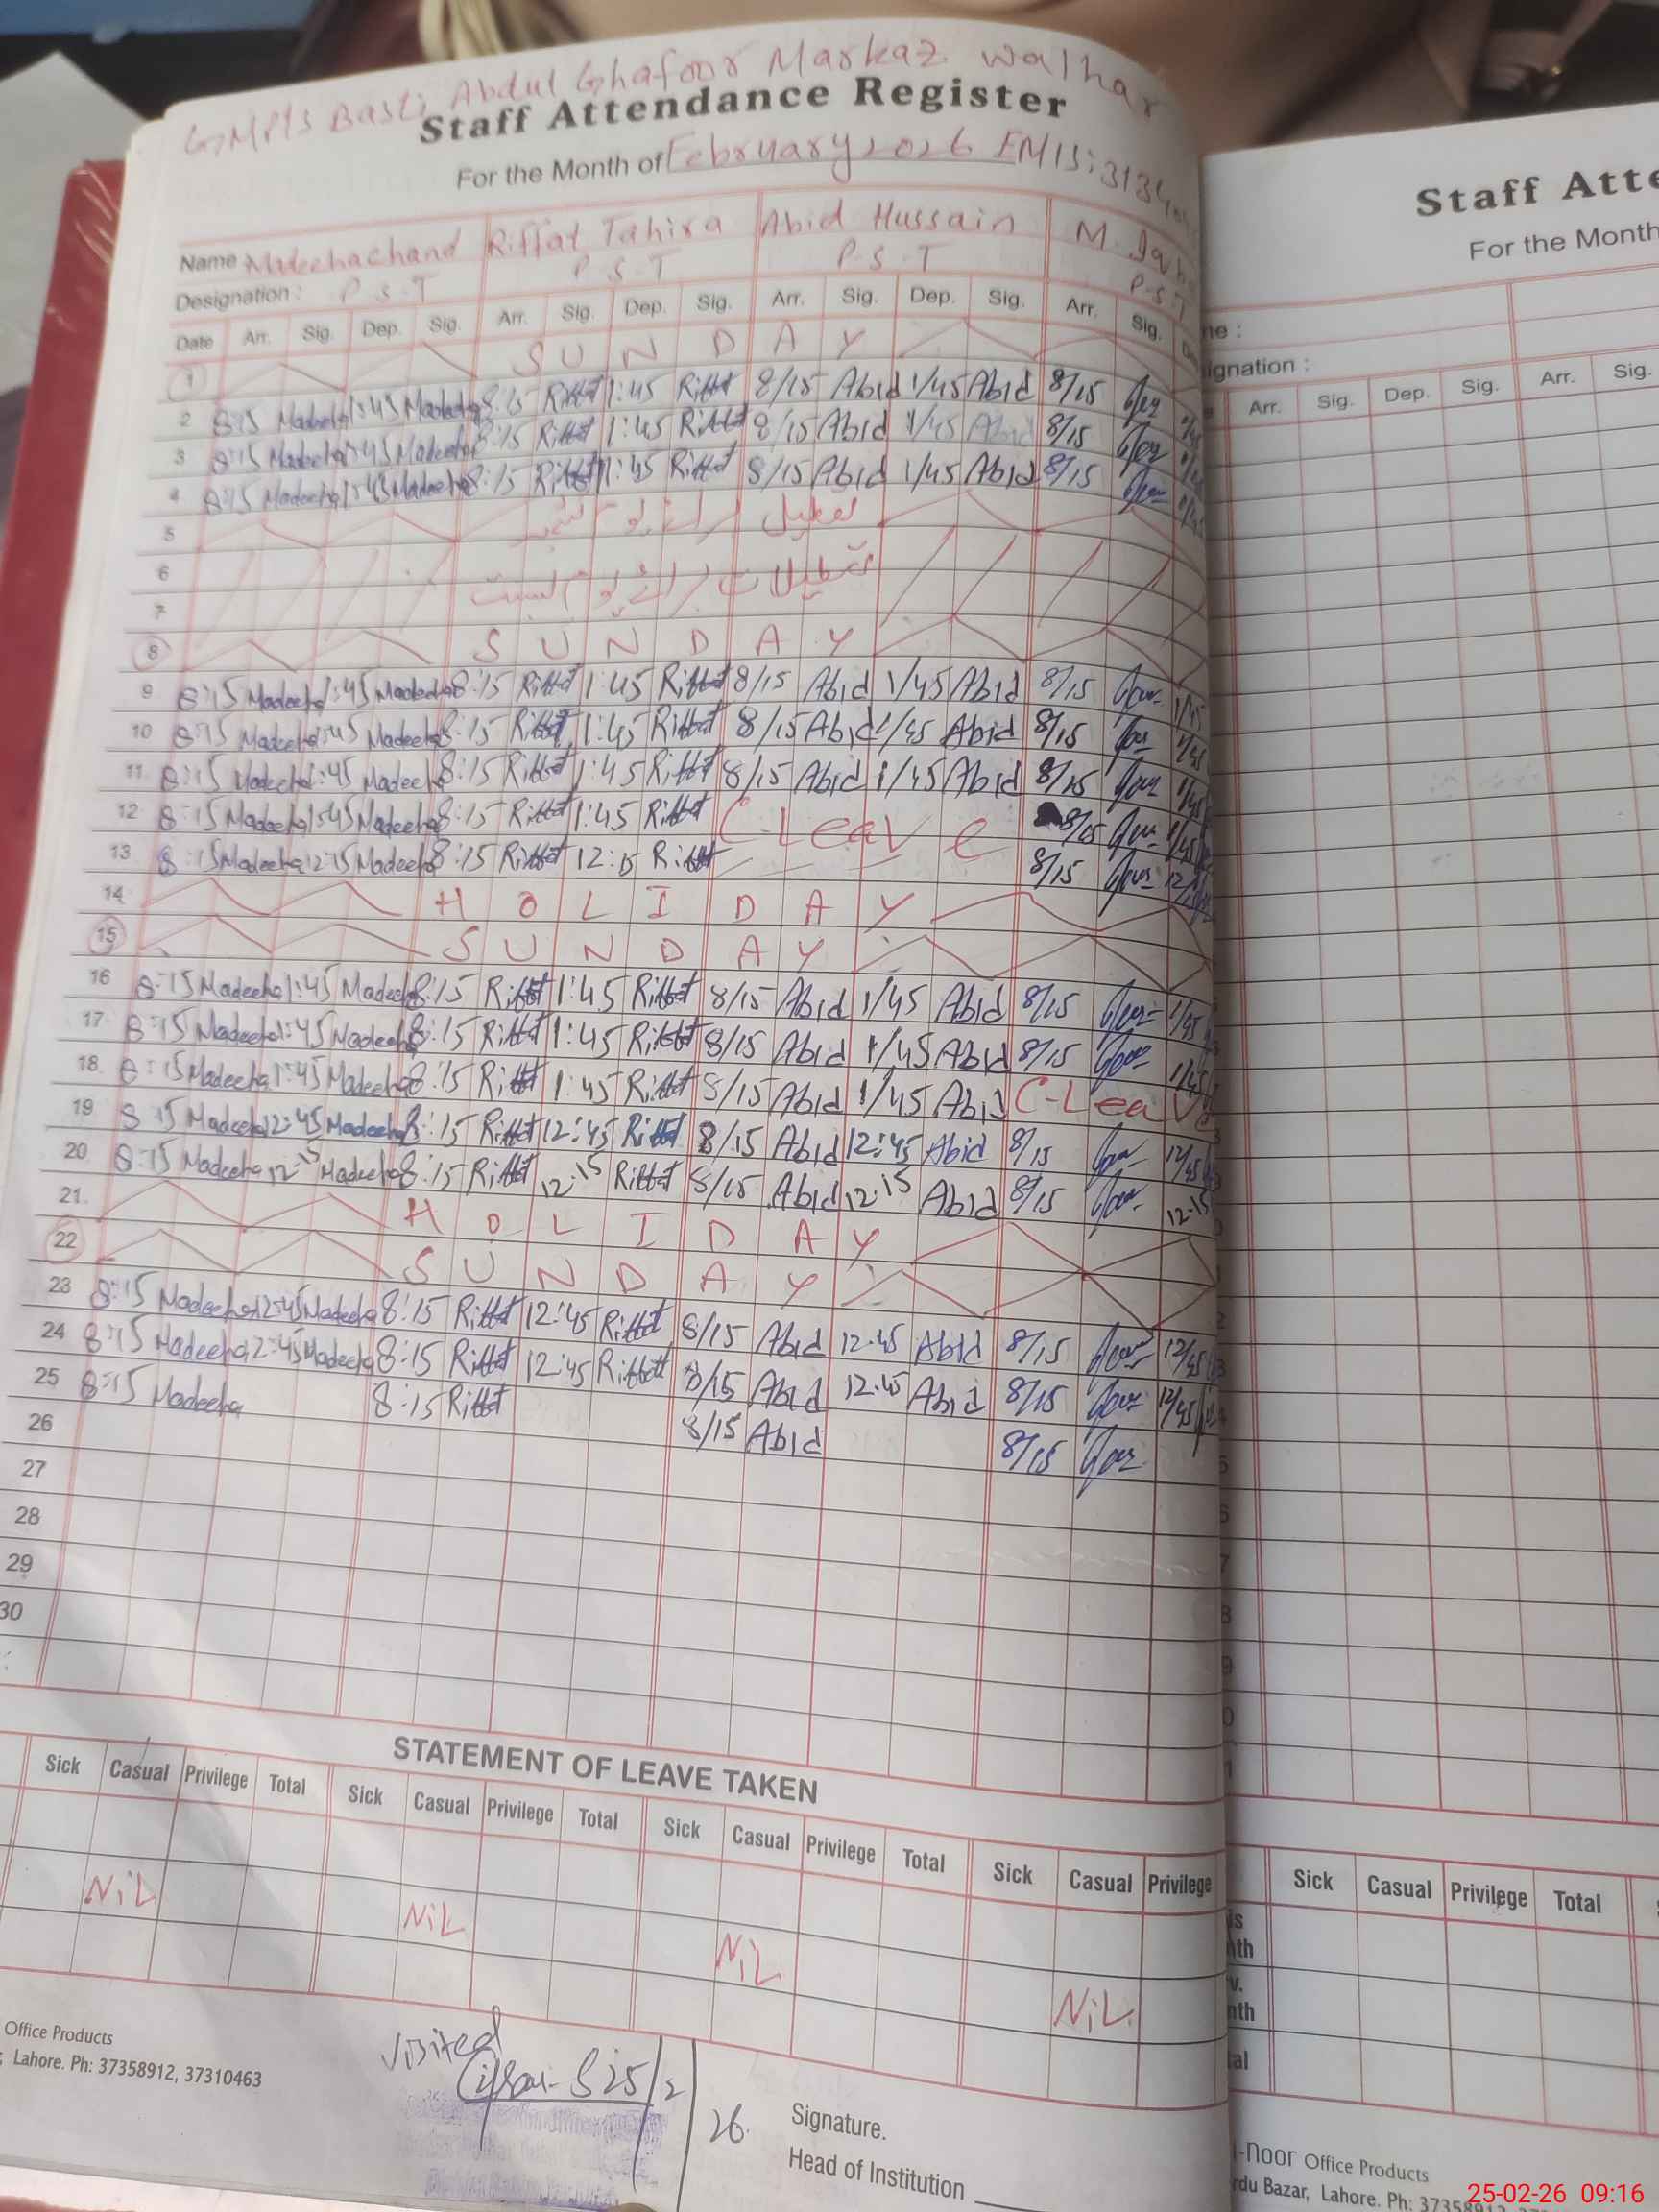 GMPS Basti Abdul Ghafoor Markaz Walhar
Staff Attendance Register
For the Month of February 2026 EMIS: 3134
Name : Madeehachand Riffat Tahira Abid Hussain M.
Designation : P.S.T P.S.T P.S.T P.S.T
Date Arr. Sig. Dep. Sig. Arr. Sig. Dep. Sig. Arr. Sig. Dep. Sig. Arr. Sig.
1 SUNDAY
2 8:15 Madeeha 1:45 Madeeha 8:15 Riffat 1:45 Riffat 8/15 Abid 1/45 Abid 8/15
3 8:15 Madeeha 1:45 Madeeha 8:15 Riffat 1:45 Riffat 8/15 Abid 1/45 Abid 8/15
4 8:15 Madeeha 1:45 Madeeha 8:15 Riffat 1:45 Riffat 8/15 Abid 1/45 Abid 8/15
5 تعطیل
6 تعطیلات
7
8 SUNDAY
9 8:15 Madeeha 1:45 Madeeha 8:15 Riffat 1:45 Riffat 8/15 Abid 1/45 Abid 8/15 1/45
10 8:15 Madeeha 1:45 Madeeha 8:15 Riffat 1:45 Riffat 8/15 Abid 1/45 Abid 8/15 1/45
11 8:15 Madeeha 1:45 Madeeha 8:15 Riffat 1:45 Riffat 8/15 Abid 1/45 Abid 8/15 1/45
12 8:15 Madeeha 1:45 Madeeha 8:15 Riffat 1:45 Riffat C-Leave 8/15 1/45
13 8:15 Madeeha 12:15 Madeeha 8:15 Riffat 12:15 Riffat 8/15 12/15
14 HOLIDAY
15 SUNDAY
16 8:15 Madeeha 1:45 Madeeha 8:15 Riffat 1:45 Riffat 8/15 Abid 1/45 Abid 8/15 1/45
17 8:15 Madeeha 1:45 Madeeha 8:15 Riffat 1:45 Riffat 8/15 Abid 1/45 Abid 8/15 1/45
18 8:15 Madeeha 1:45 Madeeha 8:15 Riffat 1:45 Riffat 8/15 Abid 1/45 Abid C-Leave
19 8:15 Madeeha 12:45 Madeeha 8:15 Riffat 12:45 Riffat 8/15 Abid 12:45 Abid 8/15 12/45
20 8:15 Madeeha 12:15 Madeeha 8:15 Riffat 12:15 Riffat 8/15 Abid 12:15 Abid 8/15 12-15
21 HOLIDAY
22 SUNDAY
23 8:15 Madeeha 12:45 Madeeha 8:15 Riffat 12:45 Riffat 8/15 Abid 12.45 Abid 8/15 12/45
24 8:15 Madeeha 12:45 Madeeha 8:15 Riffat 12:45 Riffat 8/15 Abid 12.45 Abid 8/15 12/45
25 8:15 Madeeha 8:15 Riffat 8/15 Abid 8/15
26
27
28
29
30
STATEMENT OF LEAVE TAKEN
Sick Casual Privilege Total Sick Casual Privilege Total Sick Casual Privilege Total Sick Casual Privilege
NiL NiL NiL NiL
Office Products
Lahore. Ph: 37358912, 37310463
Visited
25/2
26.
Signature.
Head of Institution
Staff Atte
For the Month
ne :
ignation :
Arr. Sig. Dep. Sig. Arr. Sig.
Sick Casual Privilege Total
is
nth
v.
nth
tal
l-noor Office Products
rdu Bazar, Lahore. Ph: 37358912
25-02-26 09:16